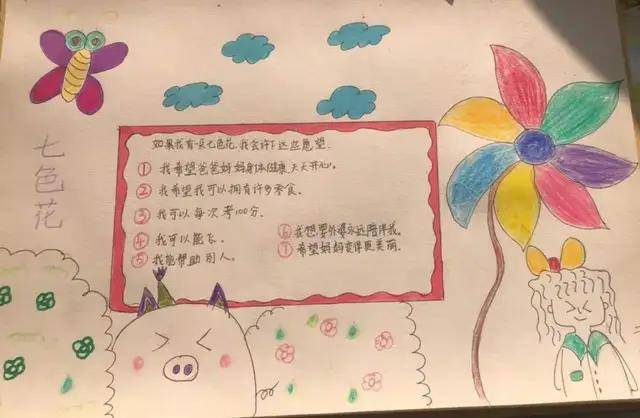 七色花
如果我有一朵七色花,我会许下这些愿望.
① 我希望爸爸妈妈身体健康,天天开心。
② 我希望我可以拥有许多零食。
③ 我可以每次考100分.
④ 我可以能飞。
⑤ 我能帮助别人。
⑥ 我想要外婆永远陪伴我。
⑦ 希望妈妈变得更美丽.